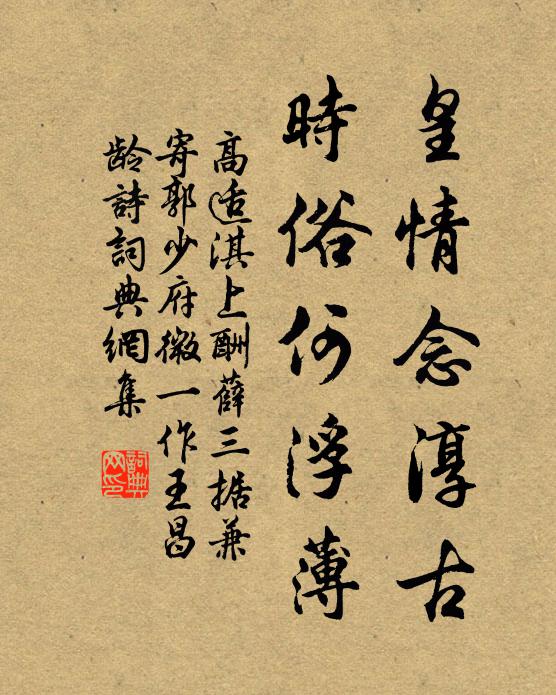 皇情念淳古
時俗何浮薄
高适淇上酬薛三据兼
寄郭少府微一作王昌
龄詩詞典網集
詞典网印